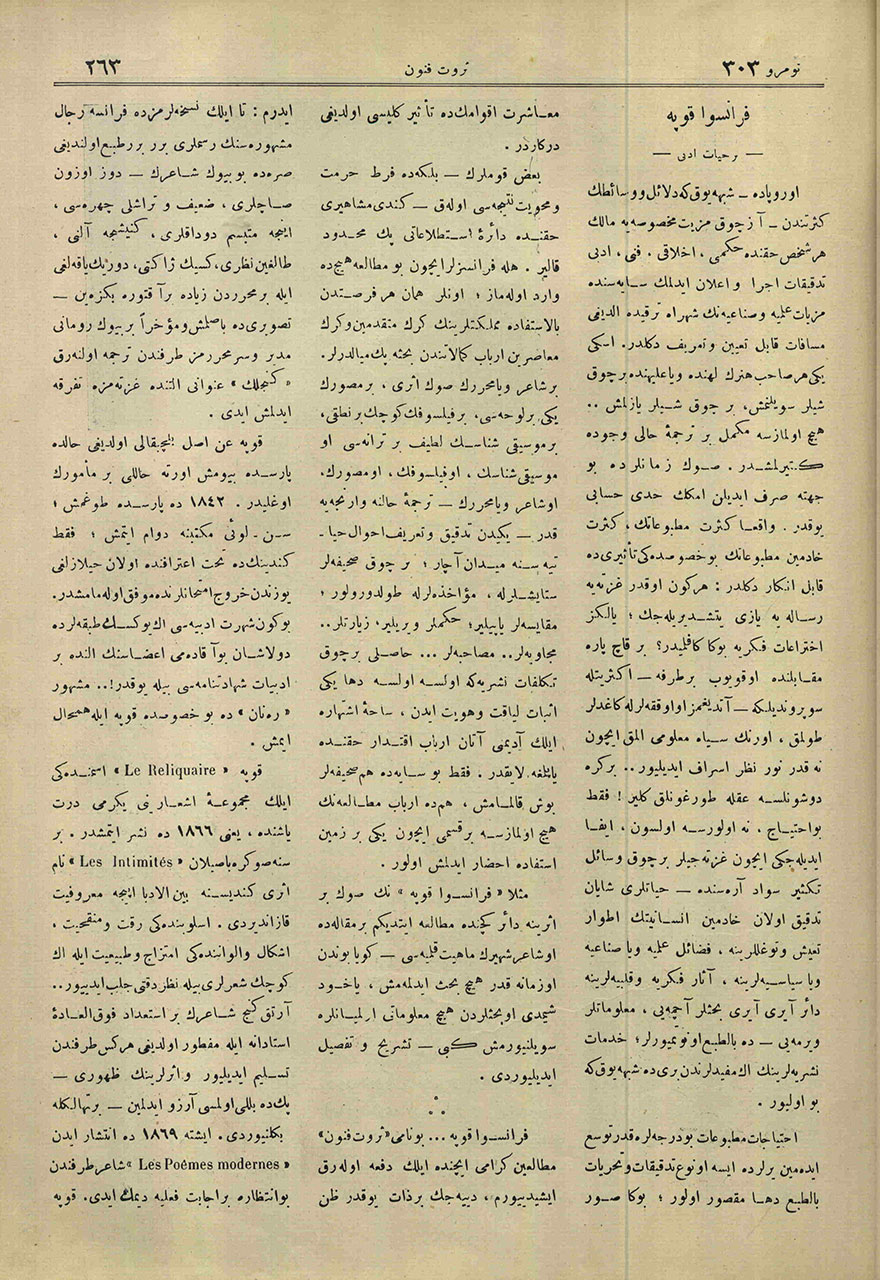 نومرو ٣٠٣
ثروت فنون
٢٦٣
فرانسوا قوپه
— بر حیات ادبی —
اوروپاده — شبهه یوق که دلائل ووسائطك
كثرتندن — آز چوق مزیت مخصوصه یه مالك
هر شخص حقنده حكمی ، اخلاقی ، فنی ، ادبی
تدقیقات اجرا و اعلان ایدلمك سایه سنده
مزیات علمیه و صناعیه نك شهراه ترقیده آلدیغی
مسافات قابل تعیین و تعریف دكلدر. اسكی
یكی هر صاحب هنرك لهنده ویا علیهنده بر چوق
شیلر سویلنمش، بر چوق شیلر یازلمش ..
هیچ اولمازسه مكمل بر ترجمۀ حالی وجوده
كتیرلمشدر. صوك زمانلرده بو
جهته صرف ایدیلن امكك حدی حسابی
یوقدر . واقعا كثرت مطبوعاتك ، كثرت
خادمین مطبوعاتك بو خصوصده كی تأثیری ده
قابل انكار دكلدر : هركون اوقدر غزته یه
رساله یه یازی یتشدیریله جك ؛ یالكز
اختراعات فكریه بوكا كافلیدر؟ بر قاچ پاره
مقابلنده اوقویوب برطرفه — اكثریتله
سوپروندیلكه — آتدیغمز او اوفقه لرله كاغدلر
طولمق ، اورنك سیاه معلومی المق ایچون
نه قدر نور نظر اسراف ایدیلیور .. بر كره
دوشونلسه عقله طورغونلق كلیر ! فقط
بو احتیاج ، نه اولورسه اولسون ، ایفا
ایدیله جكی ایچون غزته جیلر بر چوق وسائل
تكثیر سواد آره سنده — حیاتلری شایان
تدقیق اولان خادمین انسانیتك اطوار
تعیش و توغللرینه ، فضائل علمیه ویا صناعیه
ویا سیاسیه لرینه ، آثار فكریه وقلبیه لرینه
دائر آیری آیری بحثلر آچمه یی ، معلوماتلر
ویرمه یی — ده بالطبع اونوتمیورلر؛ خدمات
نشریه لرینك اك مفیدلرندن بری ده شبهه یوق كه
بو اولیور .
احتیاجات مطبوعات بو درجه لره قدر توسع
ایده مین یرلرده ایسه او نوع تدقیقات وتحریات
بالطبع دها مقصور اولور ؛ بوكا صور
معاشرت اقوامك ده تأثیر كلیسی اولدیغی
دركاردر .
بعض قوملرك — بلكه ده فرط حرمت
و محویت نتیجه سی اوله رق — كندی مشاهیری
حقنده دائرۀ استطلاعاتی پك محدود
قالیر. هله فرانسزلر ایچون بو مطالعه هیچ ده
وارد اوله ماز ؛ اونلر همان هر فرصتدن
بالاستفاده مملكتلرینك كرك متقدمین وكرك
معاصرین ارباب كمالاتندن بحثه پك میالدرلر.
بر شاعر ویا محررك صوك اثری ، بر مصورك
یكی بر لوحه سی، بر فیلسوفك كوچك بر نطقی،
بر موسیقی شناسك لطیف بر ترانه سی او
موسیقی شناسك ، او فیلسوفك ، او مصورك.
او شاعر ویا محررك — ترجمۀ حالنه وارنجه یه
قدر — یكیدن تدقیق و تعریف احوال حیا-
تیه سنه میدان آچار ؛ بر چوق صحیفه لر
ستایشلرله ، مؤاخذه لرله طولدورولور ؛
مقایسه لر یاپیلیر؛ حكملر ویریلیر، زیارتلر..
مجاوبه لر.. مصاحبه لر ... حاصلی بر چوق
تكلفات نشریه كه اولسه اولسه دها یكی
اثبات لیاقت وهویت ایدن ، ساحۀ اشتهاره
ایلك آدیمی آتان ارباب اقتدار حقنده
یاپلغه لایقدر. فقط بو سایه ده هم صحیفه لر
بوش قالمامش ، هم ده ارباب مطالعه نك
هیچ اولمازسه بر قسمی ایچون یكی بر زمین
استفاده احضار ایدلمش اولور .
مثلا « فرانسوا قوپه » نك صوك بر
اثرینه دائر كچنده مطالعه ایتدیكم بر مقاله ده
او شاعر شهیرك ماهیت قلمیه سی — كویا بوندن
اوزمانه قدر هیچ بحث ایدلمه مش ، یاخود
شیمدی او بحثلردن هیچ معلوماتی اولمیانلره
سویلنیورمش كبی — تشریح و تفصیل
ایدیلیوردی .
فرانسوا قوپه ... بو نامی « ثروت فنون »
مطالعین كرامی ایچنده ایلك دفعه اوله رق
ایشیدییورم، دییه جك بر ذات یوقدر ظن
ایدرم : تا ایلك نسخه لرمزده فرانسه رجال
مشهوره سنك رسملری برر برر طبع اولندیغی
صره ده بو بیوك شاعرك — دوز اوزون
صاچلری ، ضعیف و تراشلی چهره سی ،
اینجه متبسم دوداقلری، كنیشجه آلنی ،
طالغین نظری، كسیك ژاكتی، دوریك یاقه لغی
ایله بر محرردن زیاده بر آقتوره بكزه ین —
تصویری ده باصلمش ومؤخراً بر بیوك رومانی
مدیر وسر محررمز طرفندن ترجمه اولنه رق
« كنجلك » عنوانی التنده غزته مزه تفرقه
ایدلمش ایدی .
قوپه عن اصل بلچیقالی اولدیغی حالده
پارسده بیومش اورته حاللی بر مأمورك
اوغلیدر. ١٨٤٢ ده پارسده طوغمش ؛
سن - لوئی مكتبنه دوام ایتمش ؛ فقط
كندینك ده تحت اعترافنده اولان حیلازلغی
یوزندن خروج امتحانلرنده موفق اوله مامشدر.
بوكون شهرت ادبیه سی اك یوكسك طبقه لرده
دولاشان بو آقاده می اعضاسنك النده بر
ادبیات شهادتنامه سی بیله یوقدر!.. مشهور
« ره نان » ده بو خصوصده قوپه ایله همحال
ایمش .
قوپه « Le Reliquaire » اسمنده كی
ایلك مجموعۀ اشعارینی یكرمی درت
یاشنده ، یعنی ١٨٦٦ ده نشر ایتمشدر. بر
سنه صوكره باصیلان « Les Intimités » نام
اثری كندیسنه بین الادبا اینجه معروفیت
قازاندیردی . اسلوبنده كی رقت و منقحیت ،
اشكال والواننده كی امتزاج وطبیعت ایله اك
كوچك شعرلری بیله نظر دقتی جلب ایدییور..
آرتق كنج شاعرك بر استعداد فوق العادۀ
استادانه ایله مفطور اولدیغی هركس طرفندن
تسلیم ایدیلیور و اثرلرینك ظهوری —
پك ده بللی اولمسی آرزو ایدلمین — بر تهالكله
بكلنیوردی. ایشته ١٨٦٩ ده انتشار ایدن
« Les Poêmes modernes » شاعر طرفندن
بو انتظاره بر اجابت فعلیه دیمك ایدی. قوپه